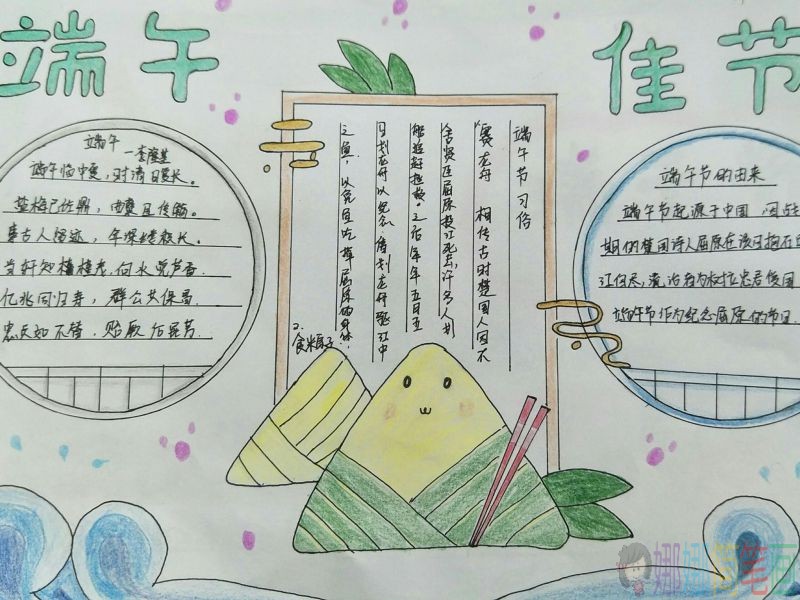 端午
佳节
端午
李隆基
端午临中夏，时清日复长。
盐梅已佐鼎，曲糵且传觞。
事古人留迹，年深缕积长。
当轩知槿茂，向水觉芦香。
亿兆同归寿，群公共保昌。
忠贞如不替，贻厥后昆芳。
端午节习俗
赛龙舟 相传古时楚国人因不
舍贤臣屈原投江死去，许多人划
船追赶拯救。之后每年五月五
日划龙舟以纪念。借划龙舟驱江中
之鱼，以免鱼吃掉屈原的身体
2.
食粽子
端午节的由来
端午节起源于中国
期的楚国诗人屈原在该日抱石
江自尽，统治者为树立忠君爱国
端午节作为纪念屈原的节日
娜娜简笔画